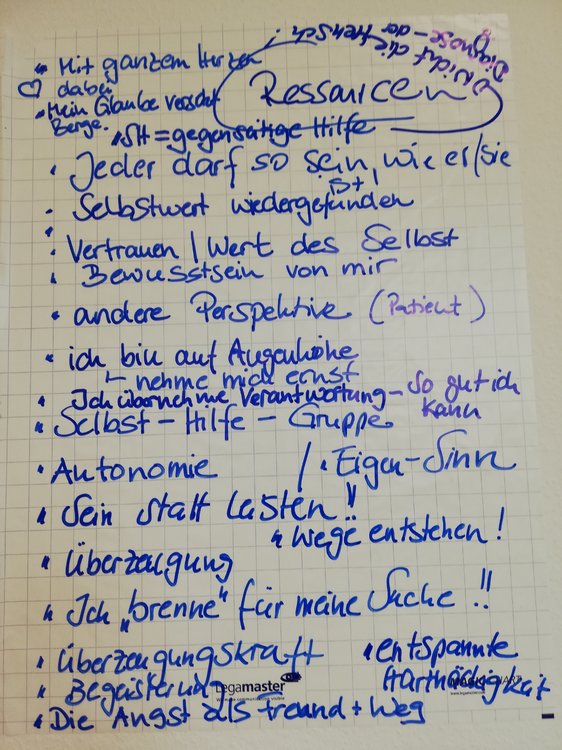 Nicht die
Diagnose –
der Mensch!
Ressourcen
• Mit ganzem Herzen
dabei
• Mein Glaube versetzt
Berge.
• SH = gegenseitige Hilfe
• Jeder darf so sein, wie er/sie
ist
• Selbstwert wiedergefunden
• Vertrauen / Wert des Selbst
• Bewusstsein von mir
• andere Perspektive (Patient)
• ich bin auf Augenhöhe
nehme mich ernst
• Ich übernehme Verantwortung – so gut ich
kann
• Selbst – Hilfe – Gruppe
• Autonomie / • Eigen-Sinn
• Sein statt leisten!!
• Wege entstehen!
• Überzeugung
• Ich „brenne" für meine Suche!!
• Überzeugungskraft
• entspannte
Hartnäckigkeit
• Begeisterung
Legamaster
• Die Angst als Freund + Weg